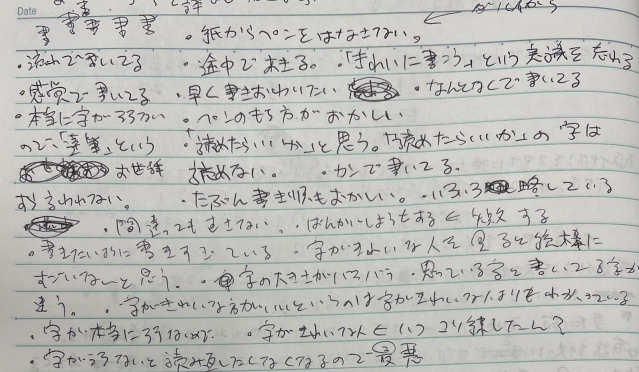 Date
書 書 書 書 ・紙からペンをはなさない。
・流れで書いてる ・途中であきる。・「きれいに書こう」という意識を忘れる
・感覚で書いてる ・早く書きおわりたい ・なんとなくで書いてる
・本当に字が汚い ・ペンのもち方がおかしい
ので、「達筆」という ・「読めたらいいか」と思う。「読めたらいいか」の字は
お世辞 読めない。・カンで書いてる。
すら言われない。・たぶん書き順もおかしい。・いろいろ略している
・間違っても直さない。・ばんかいしようとする ← 失敗する
・書きたいように書きすぎている ・字がきれいな人を見ると純粋に
すごいな〜と思う。・字の大きさがバラバラ ・思っている字と書いてる字が
違う。・字がきれいな方がいいというのは字がきれいな人よりもわかっている
・字が本当に汚いので ・字がきれいな人 ← いつ 練したん?
・字が汚いと読み返したくなくなるので最悪